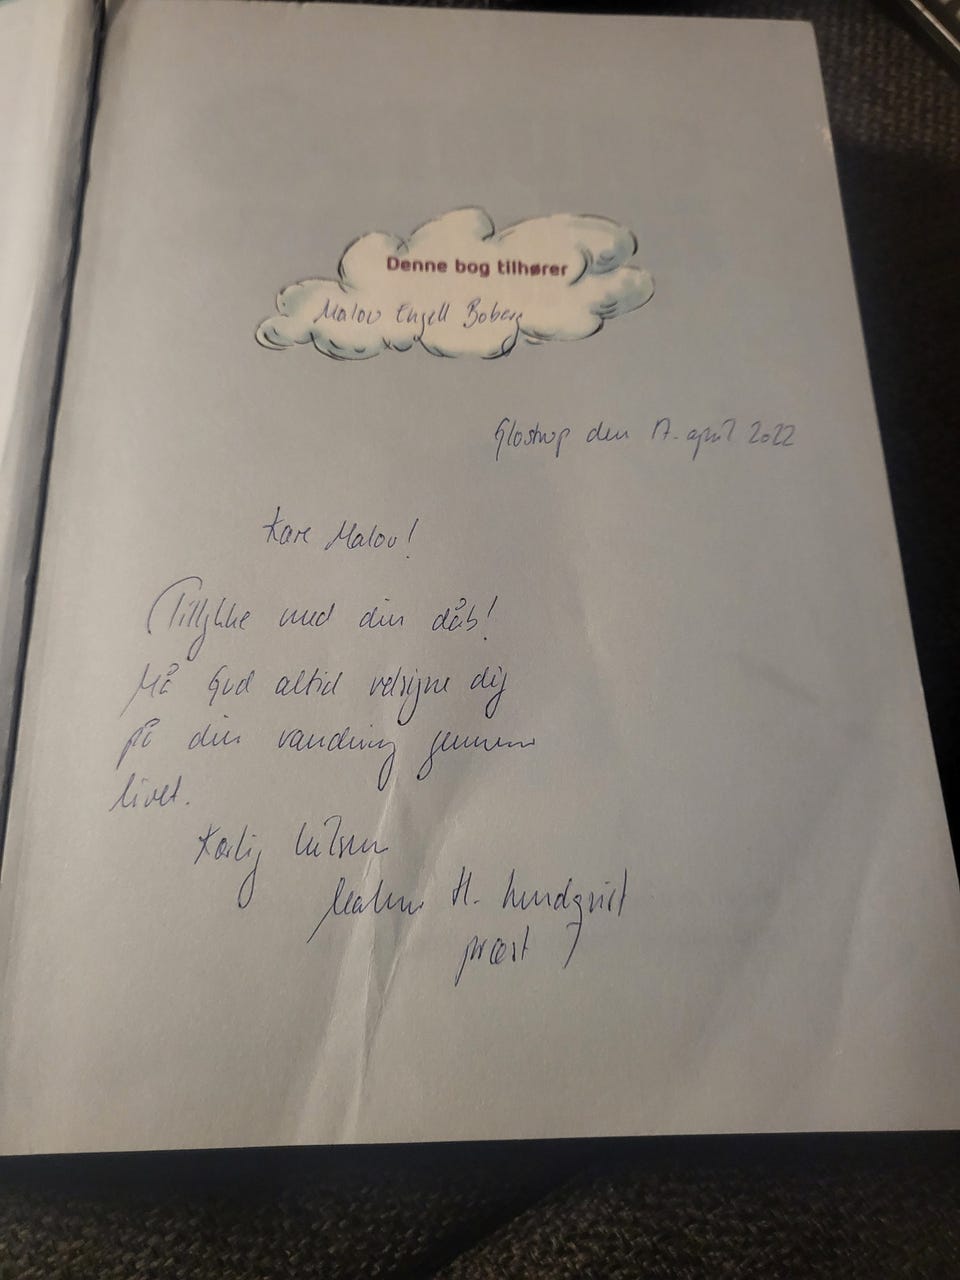 Denne bog tilhører
Malou Engell Boberg
Glostrup den 17. april 2022
Kære Malou!
Tillykke med din dåb!
Må Gud altid velsigne dig
på din vandring gennem
livet.
Kærlig hilsen
H. Lundqvist
præst